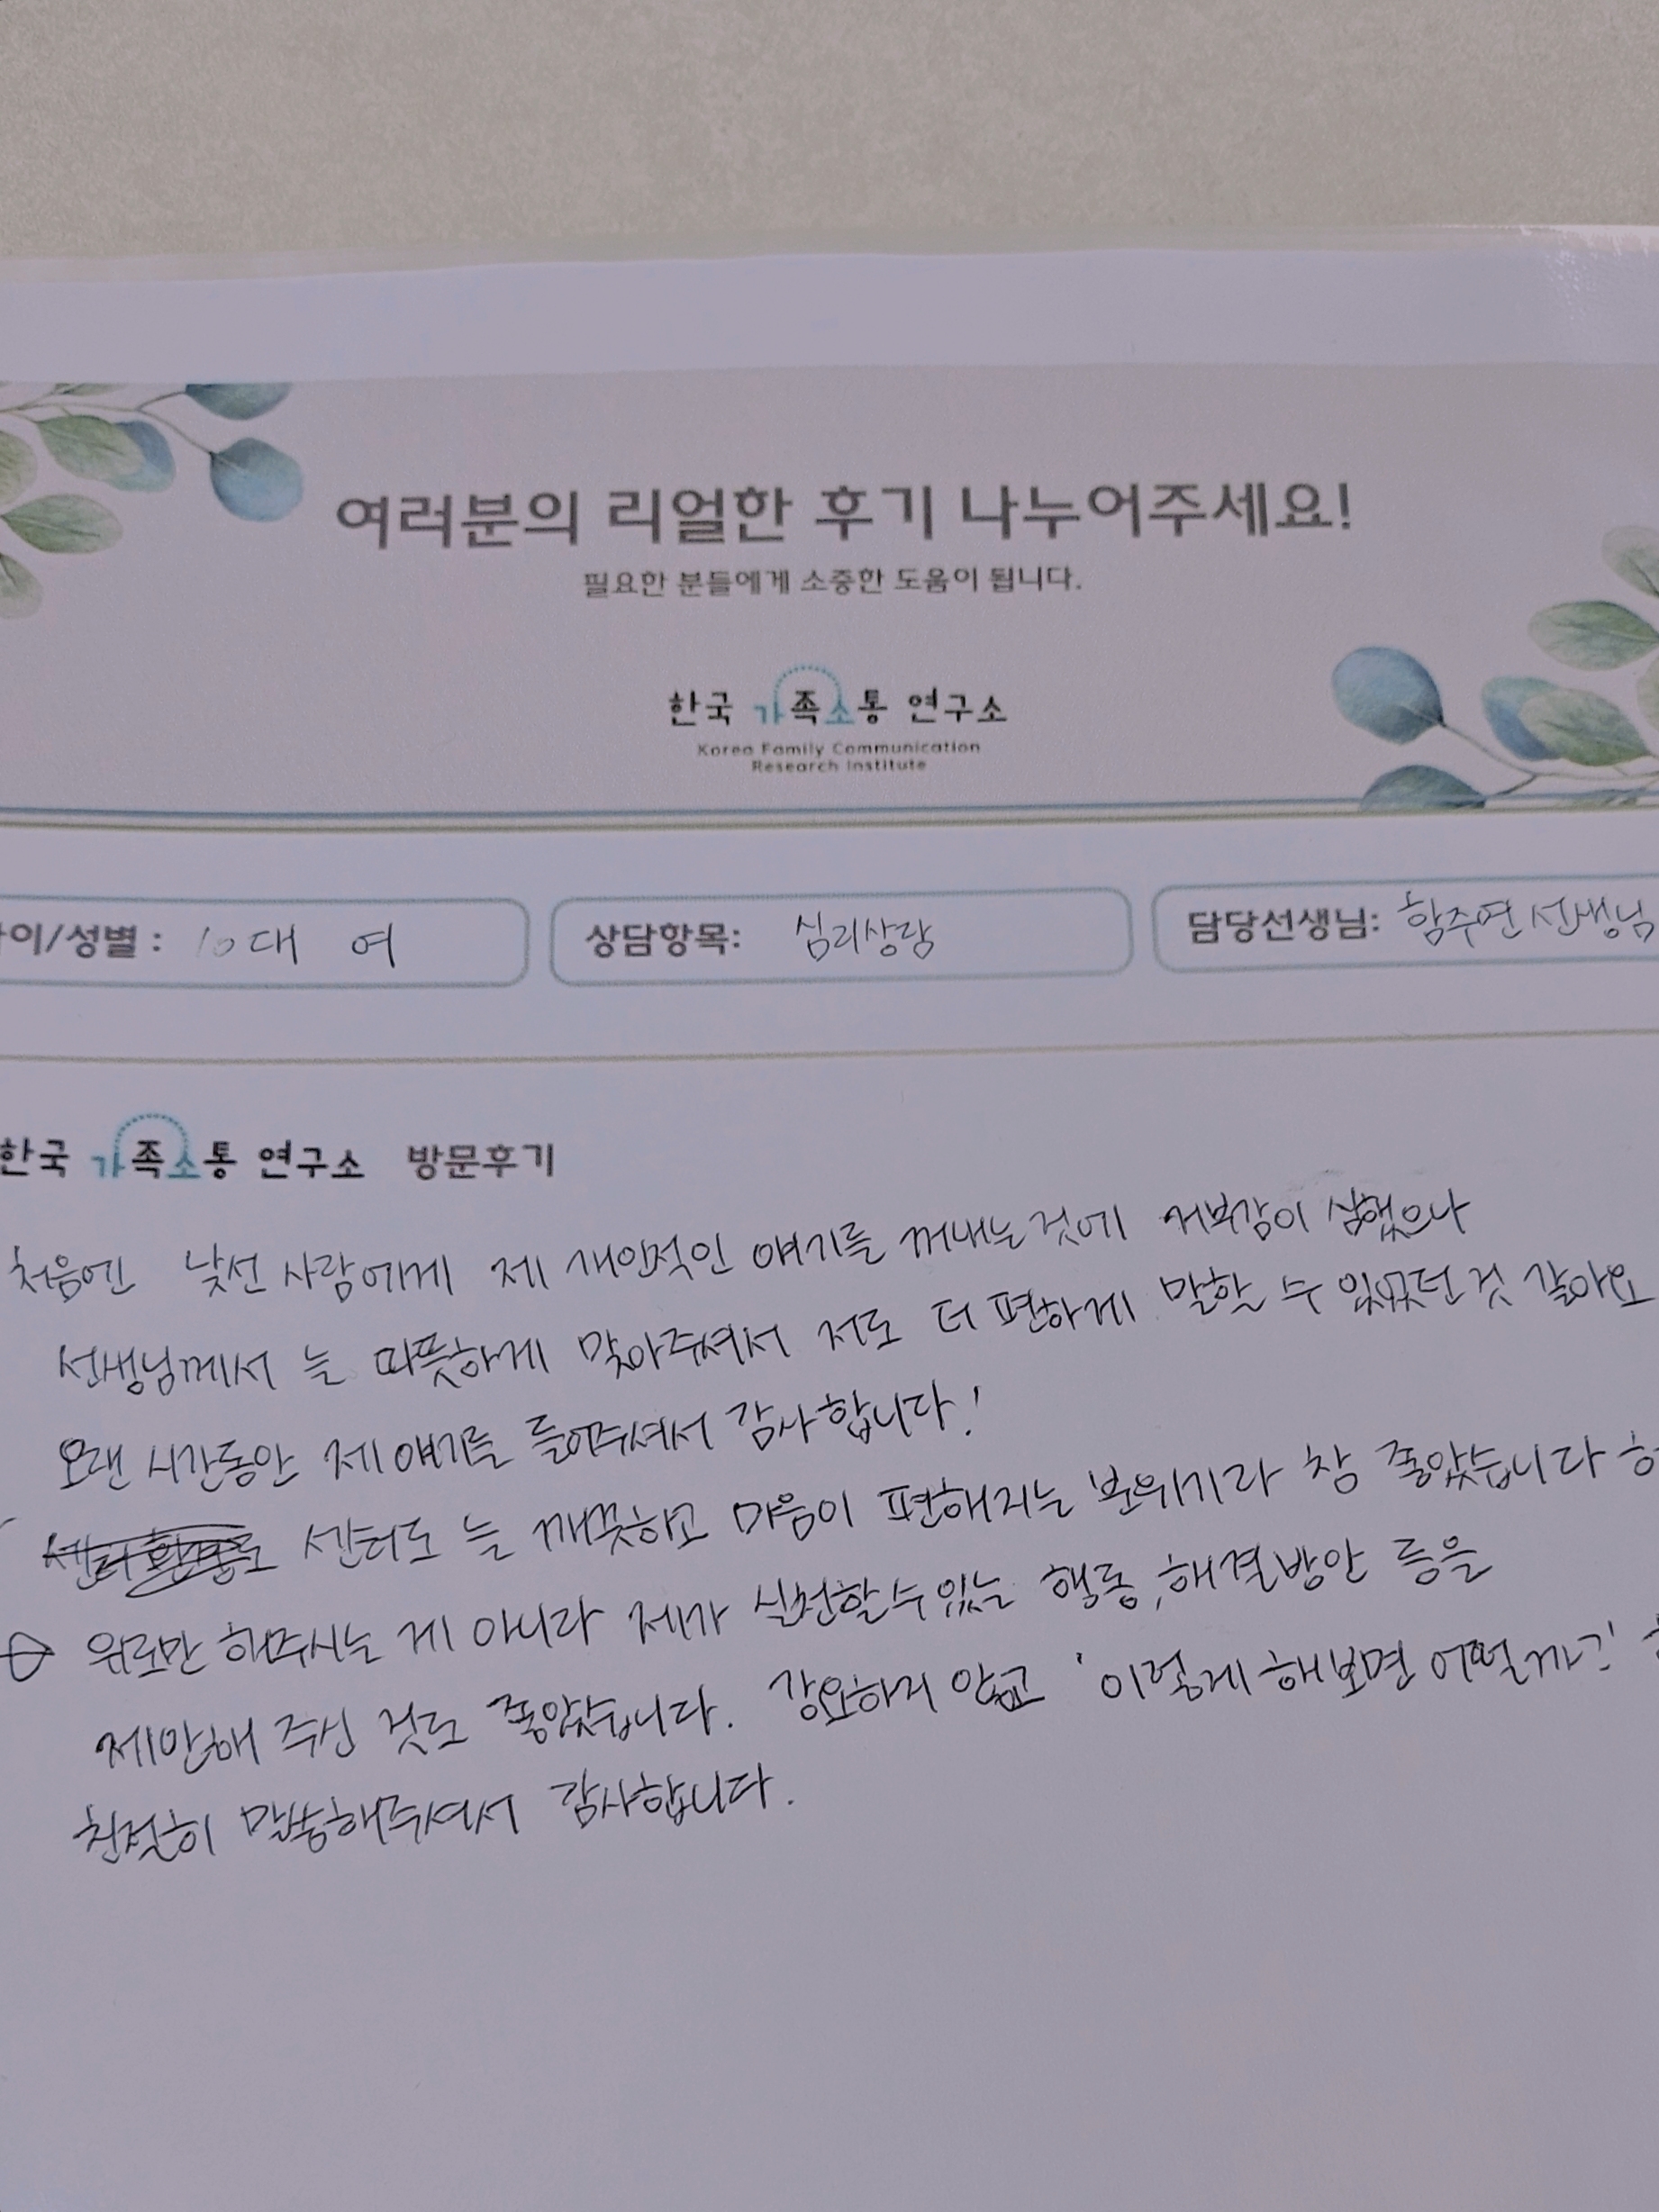 여러분의 리얼한 후기 나누어주세요!
필요한 분들에게 소중한 도움이 됩니다.
한국 가족소통 연구소
Korea Family Communication
Research Institute
이/성별 : 10대 여 상담항목: 심리상담 담당선생님: 함주연 선생님
한국 가족소통 연구소 방문후기
처음엔 낯선 사람에게 제 개인적인 얘기를 꺼내는 것에 거부감이 심했으나
선생님께서 늘 따뜻하게 맞아주셔서 저도 더 편하게 말할 수 있었던 것 같아요
오랜 시간동안 제 얘기를 들어주셔서 감사합니다!
센터도 늘 깨끗하고 마음이 편해지는 분위기라 참 좋았습니다
위로만 해주시는 게 아니라 제가 실천할 수 있는 행동, 해결방안 등을
제안해 주신 것도 좋았습니다. 강요하지 않고 '이렇게 해보면 어떨까?'
친절히 말씀해주셔서 감사합니다.